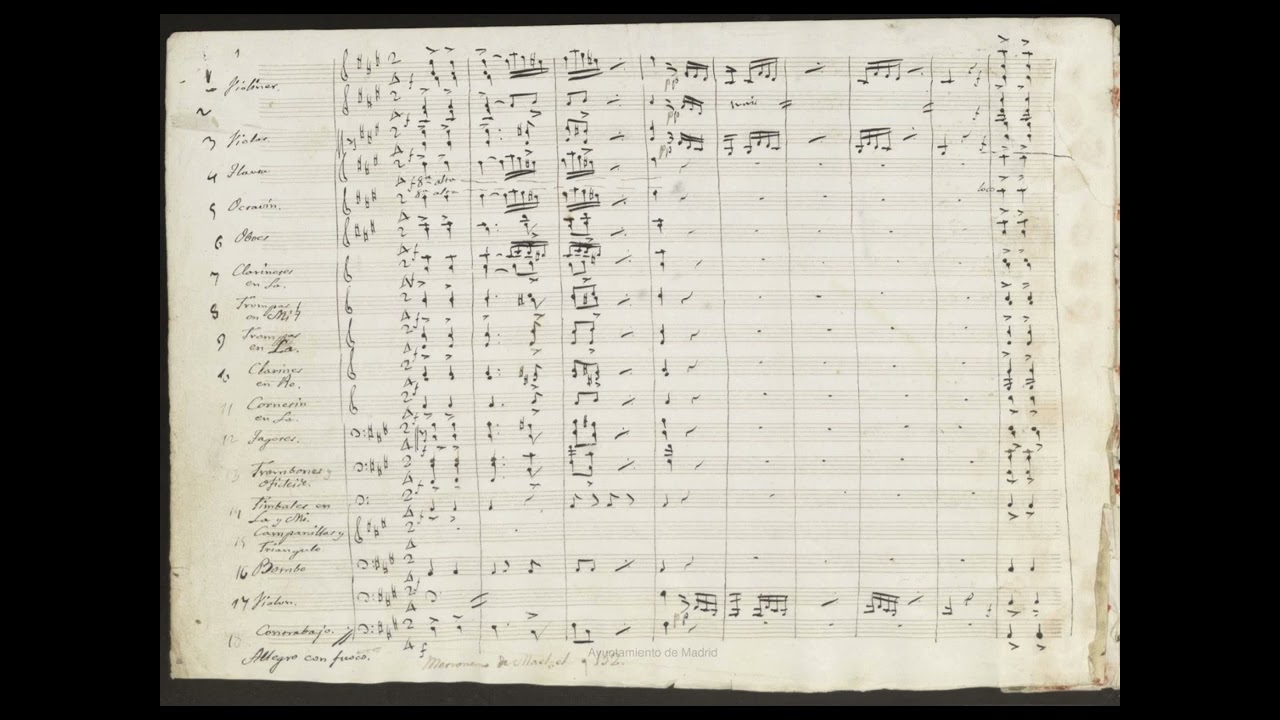 1
Violines.
2
3 Violas.
4 Flauta
5 Octavin.
6 Oboes
7 Clarinetes
en La.
8 Trompas
en Mi♮
9 Trompas
en La.
10 Clarines
en Re.
11 Cornetin
en La.
12 Fagotes.
13 Trombones y
Oficleide.
14 Timbales en
La y Mi.
15 Campanillas y
Triangulo.
16 Bombo
17 Violon.
18 Contrabajo.
Allegro con fuoco.
8ª alta
8ª alta
loco
pp
pp
pp
pp
Metronomo de Maelzel 152.
Ayuntamiento de Madrid